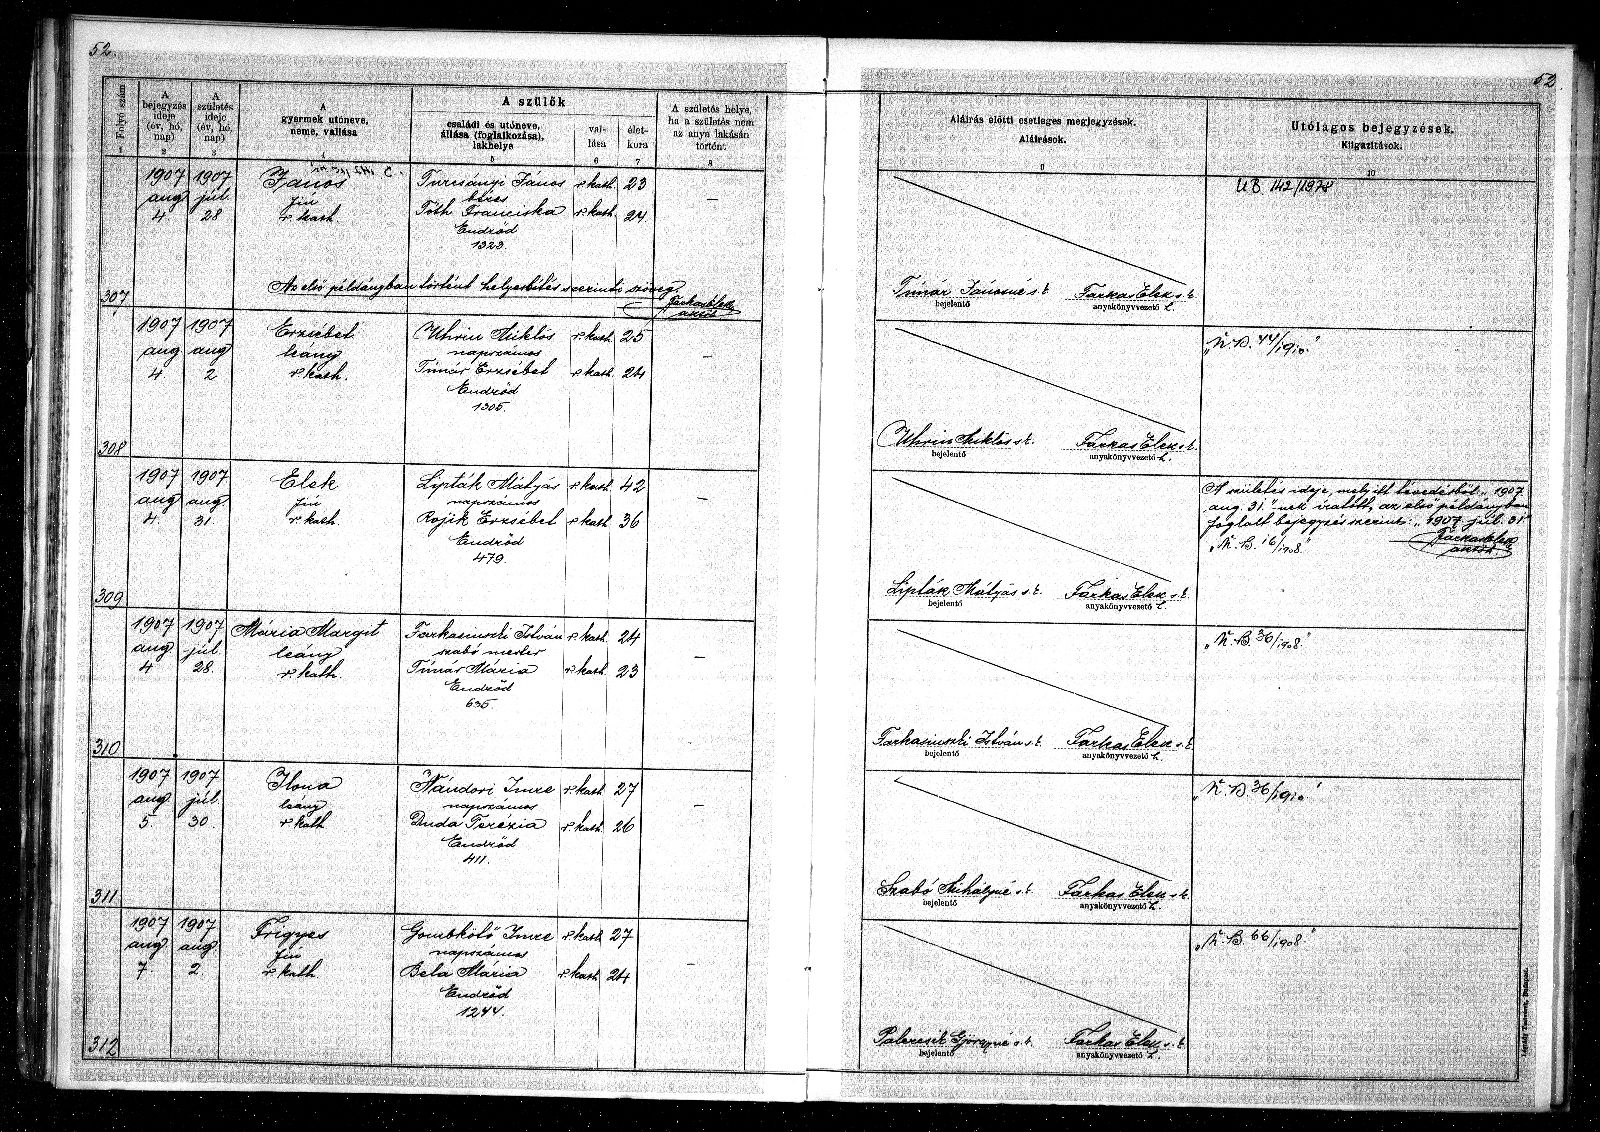 52.
52.
Folyó szám
A bejegyzés ideje (év, hó, nap)
A születés ideje (év, hó, nap)
A gyermek utóneve, neme, vallása
A szülők
családi és utóneve, állása (foglalkozása), lakhelye
val-lása
élet-kora
A születés helye, ha a születés nem az anya lakásán történt.
Aláírás előtti esetleges megjegyzések.
Aláírások.
Utólagos bejegyzések.
Kiigazítások.
1 2 3 4 5 6 7 8 9 10
307
1907 aug 4
1907 júl. 28
János
fiú
r. kath.
Turcsányi János r. kath. 23
béres
Tóth Franciska r. kath. 24
Endrőd
1323.
—
Az első példányban történt helyesbítés szerinti szöveg
Farkas Elek
Tímár Jánosné s.k.
bejelentő
Farkas Elek s.k.
anyakönyvvezető h.
UB 142/1978
308
1907 aug 4
1907 aug 2
Erzsébet
leány
r. kath.
Uhrin Miklós r. kath. 25
napszámos
Tímár Erzsébet r. kath. 24
Endrőd
1305.
—
Uhrin Miklós s.k.
bejelentő
Farkas Elek s.k.
anyakönyvvezető h.
„N.B. 44/1910.”
309
1907 aug 4.
1907 aug 31.
Elek
fiú
r. kath.
Lipták Mátyás r. kath. 42
napszámos
Rojik Erzsébet r. kath. 36
Endrőd
479.
—
Lipták Mátyás s.k.
bejelentő
Farkas Elek s.k.
anyakönyvvezető h.
A születés ideje, mely itt tévedésből „1907.
aug. 31.”-nek íratott, az első példányban
foglalt bejegyzés szerint: „1907 júl. 31.”
Farkas Elek
„N.B. 16/1908.”
310
1907 aug 4
1907 júl. 28.
Mária Margit
leány
r. kath.
Farkasinszki István r. kath. 24
szabó mester
Tímár Mária r. kath. 23
Endrőd
635.
—
Farkasinszki István s.k.
bejelentő
Farkas Elek s.k.
anyakönyvvezető h.
„N.B. 36/1908.”
311
1907 aug. 5.
1907 júl. 30.
Ilona
leány
r. kath
Nándori Imre r. kath. 27
napszámos
Duda Terézia r. kath. 26
Endrőd
411.
—
Szabó Mihályné s.k.
bejelentő
Farkas Elek s.k.
anyakönyvvezető h.
„N.B. 36/1910”
312
1907 aug 7.
1907 aug 2.
Frigyes
fiú
r. kath
Gombkötő Imre r. kath 27
napszámos
Bela Mária r. kath. 24
Endrőd
1244.
—
Palercsik Györgyné s.k.
bejelentő
Farkas Elek s.k.
anyakönyvvezető h.
„N.B. 66/1908.”